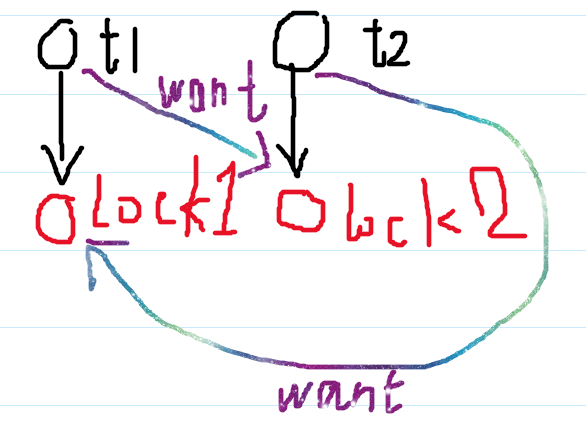 t1 t2
want
Lock1 lock2
want